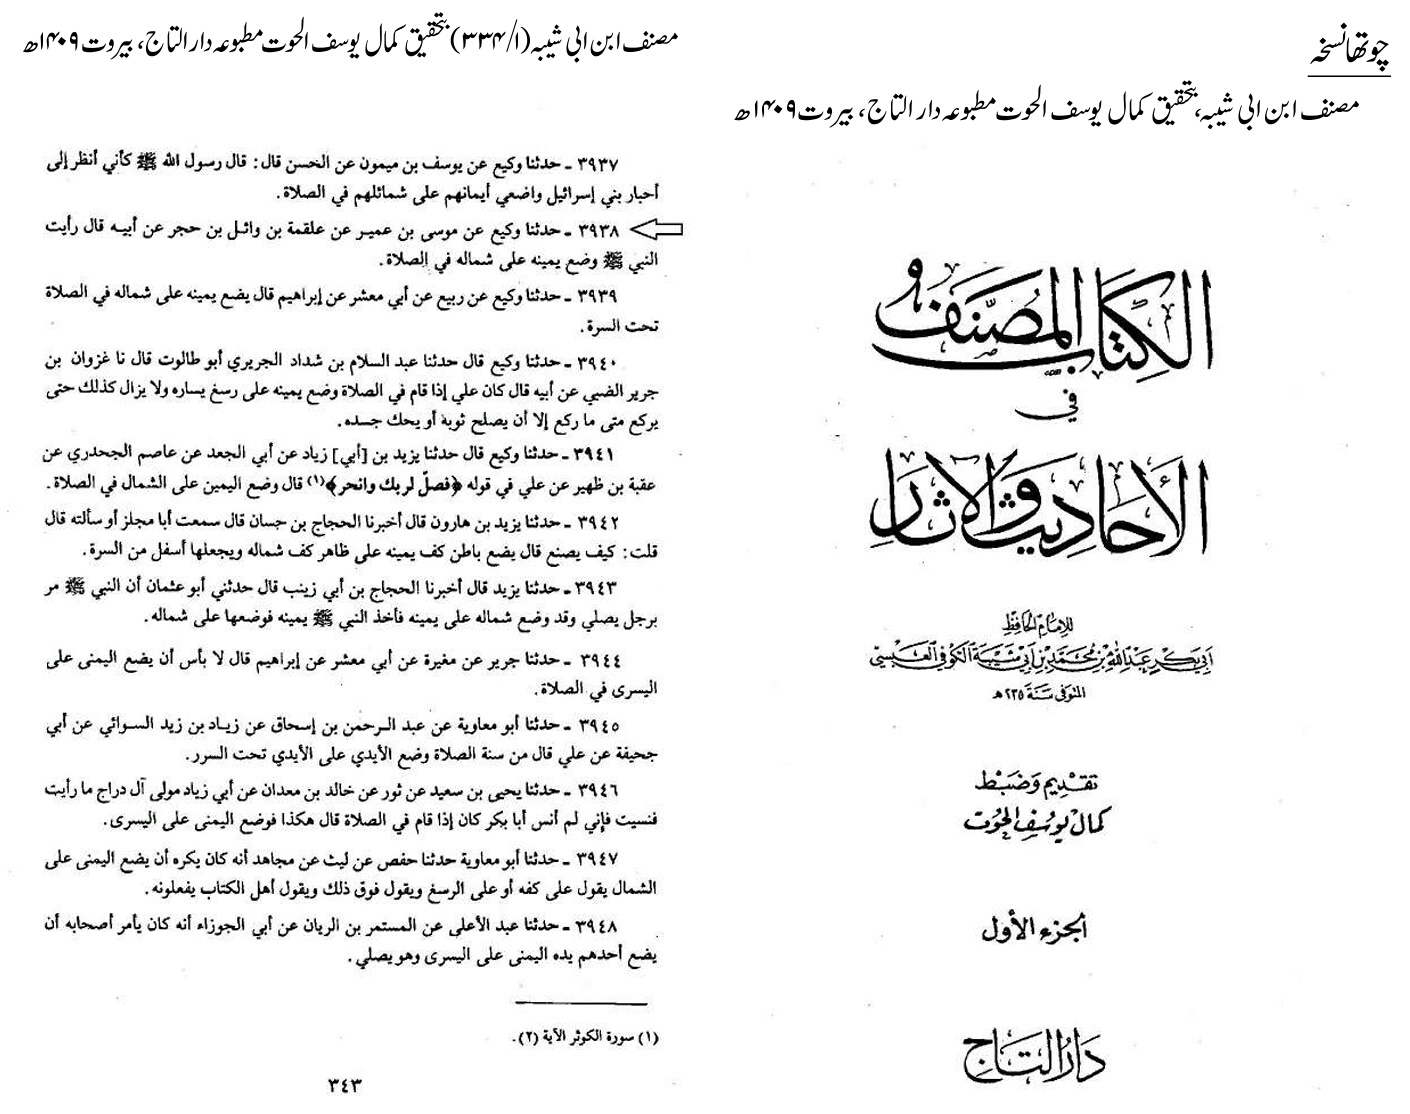 چوتھا نسخہ
مصنف ابن ابی شیبہ، بتحقیق کمال یوسف الحوت مطبوعہ دار التاج، بیروت ۱۴۰۹ھ
الكتاب المصنف
في
الأحاديث والآثار
للإمام الحافظ
أبي بكر عبد الله بن محمد بن أبي شيبة الكوفي العبسي
المتوفى سنة ٢٣٥ هـ
تقديم وضبط
كمال يوسف الحوت
الجزء الأول
دار التاج
مصنف ابن ابی شیبہ (۱/۳۳۴) بتحقیق کمال یوسف الحوت مطبوعہ دار التاج، بیروت ۱۴۰۹ھ
٣٩٣٧ ـ حدثنا وكيع عن يوسف بن ميمون عن الحسن قال: قال رسول الله ﷺ كأني أنظر إلى
أحبار بني إسرائيل واضعي أيمانهم على شمائلهم في الصلاة.
٣٩٣٨ ـ حدثنا وكيع عن موسى بن عمير عن علقمة بن وائل بن حجر عن أبيه قال رأيت
النبي ﷺ وضع يمينه على شماله في الصلاة.
٣٩٣٩ ـ حدثنا وكيع عن ربيع عن أبي معشر عن إبراهيم قال يضع يمينه على شماله في الصلاة
تحت السرة.
٣٩٤٠ ـ حدثنا وكيع قال حدثنا عبد السلام بن شداد الجريري أبو طالوت قال نا غزوان بن
جرير الضبي عن أبيه قال كان علي إذا قام في الصلاة وضع يمينه على رسغ يساره ولا يزال كذلك حتى
يركع متى ما ركع إلا أن يصلح ثوبه أو يحك جسده.
٣٩٤١ ـ حدثنا وكيع قال حدثنا يزيد بن [أبي] زياد عن أبي الجعد عن عاصم الجحدري عن
عقبة بن ظهير عن علي في قوله ﴿فصلّ لربك وانحر﴾(١) قال وضع اليمين على الشمال في الصلاة.
٣٩٤٢ ـ حدثنا يزيد بن هارون قال أخبرنا الحجاج بن حسان قال سمعت أبا مجلز أو سألته قال
قلت: كيف يصنع قال يضع باطن كف يمينه على ظاهر كف شماله ويجعلها أسفل من السرة.
٣٩٤٣ ـ حدثنا يزيد قال أخبرنا الحجاج بن أبي زينب قال حدثني أبو عثمان أن النبي ﷺ مر
برجل يصلي وقد وضع شماله على يمينه فأخذ النبي ﷺ يمينه فوضعها على شماله.
٣٩٤٤ ـ حدثنا جرير عن مغيرة عن أبي معشر عن إبراهيم قال لا بأس أن يضع اليمنى على
اليسرى في الصلاة.
٣٩٤٥ ـ حدثنا أبو معاوية عن عبد الرحمن بن إسحاق عن زياد بن زيد السوائي عن أبي
جحيفة عن علي قال من سنة الصلاة وضع الأيدي على الأيدي تحت السرر.
٣٩٤٦ ـ حدثنا يحيى بن سعيد عن ثور عن خالد بن معدان عن أبي زياد مولى آل دراج ما رأيت
فنسيت فإني لم أنس أبا بكر كان إذا قام في الصلاة قال هكذا فوضع اليمنى على اليسرى.
٣٩٤٧ ـ حدثنا أبو معاوية حدثنا حفص عن ليث عن مجاهد أنه كان يكره أن يضع اليمنى على
الشمال يقول على كفه أو على الرسغ ويقول فوق ذلك ويقول أهل الكتاب يفعلونه.
٣٩٤٨ ـ حدثنا عبد الأعلى عن المستمر بن الريان عن أبي الجوزاء أنه كان يأمر أصحابه أن
يضع أحدهم يده اليمنى على اليسرى وهو يصلي.
(١) سورة الكوثر الآية (٢).
٣٤٣